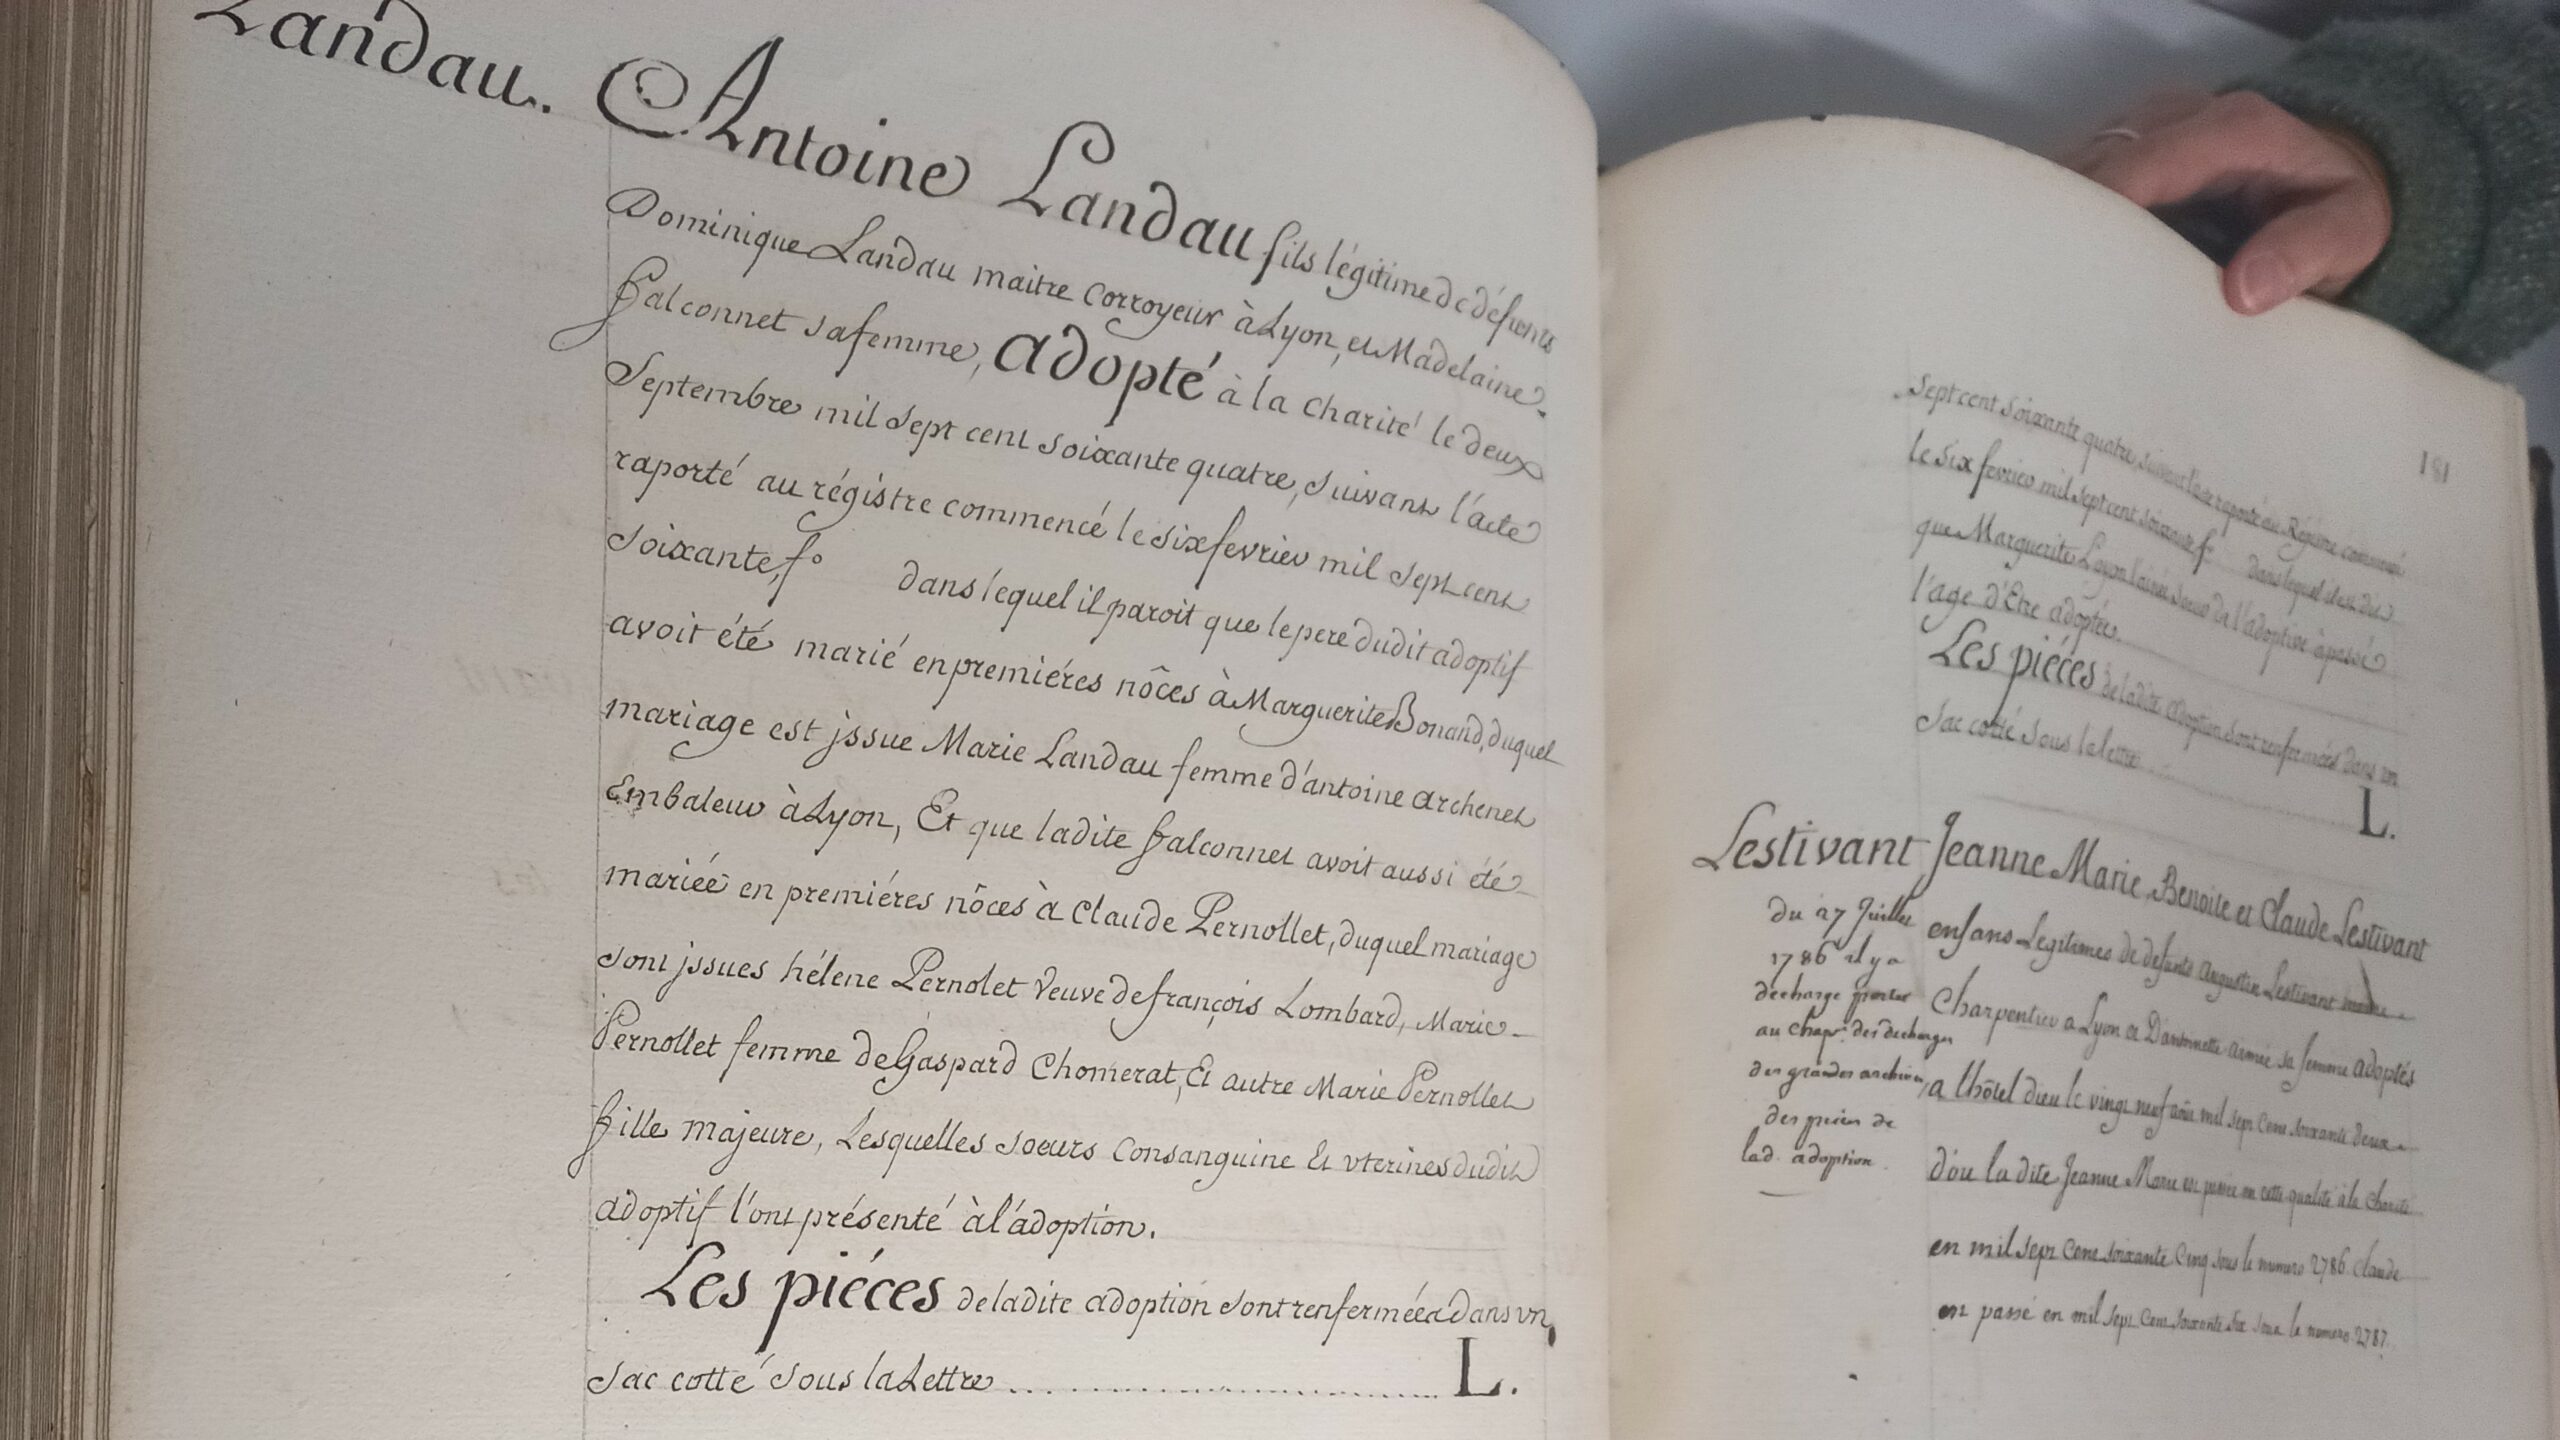 Landau.
Antoine Landau fils légitime de défunts
Dominique Landau maitre corroyeur à Lyon, et Madelaine
falconnet sa femme, adopté à la charité le deux
Septembre mil sept cent soixante quatre, suivant l'acte
raporté au régistre commencé le six fevrier mil sept cent
soixante, f.° dans lequel il paroit que le pere dudit adoptif
avoit été marié en premiéres nôces à Marguerite Bonand, duquel
mariage est jssue Marie Landau femme d'antoine archenet
Embaleur à Lyon, Et que ladite falconnet avoit aussi été
mariée en premiéres nôces à Claude Pernollet, duquel mariage
sont jssues hélene Pernolet veuve de françois Lombard, Marie
Pernollet femme de Gaspard Chomerat, Et autre Marie Pernollet
fille majeure, Lesquelles soeurs consanguine Et vterines dudit
adoptif l'ont présenté à l'adoption.
Les piéces de ladite adoption sont renfermées dans vn
sac cotté sous la Lettre .......... L.
181
sept cent soixante quatre, suivant l'acte raporté au Régistre commencé
le six fevrier mil sept cent soixante f.° dans lequel il est dit
que Marguerite l'ainée soeur de l'adoptive à passé
l'age d'Etre adoptée.
Les piéces de ladite adoption sont renfermées dans vn
sac cotté sous la lettre .......... L.
Lestivant
Jeanne Marie, Benoite et Claude Lestivant
enfans Legitimes de defunts Augustin Lestivant
Charpentier a Lyon et D'antoinette aimée sa femme adoptés
a l'hôtel dieu le vingt neuf août mil sept cent soixante deux
d'ou la dite Jeanne Marie est passée en cette qualité à la Charité
en mil sept cent soixante cinq sous le numero 2786. Claude
est passé en mil sept cent soixante six sous le numero 2787.
du 27 Juillet
1786 il y a
decharge portée
au chap.e des decharges
des grandes archives,
des pieces de
lad. adoption